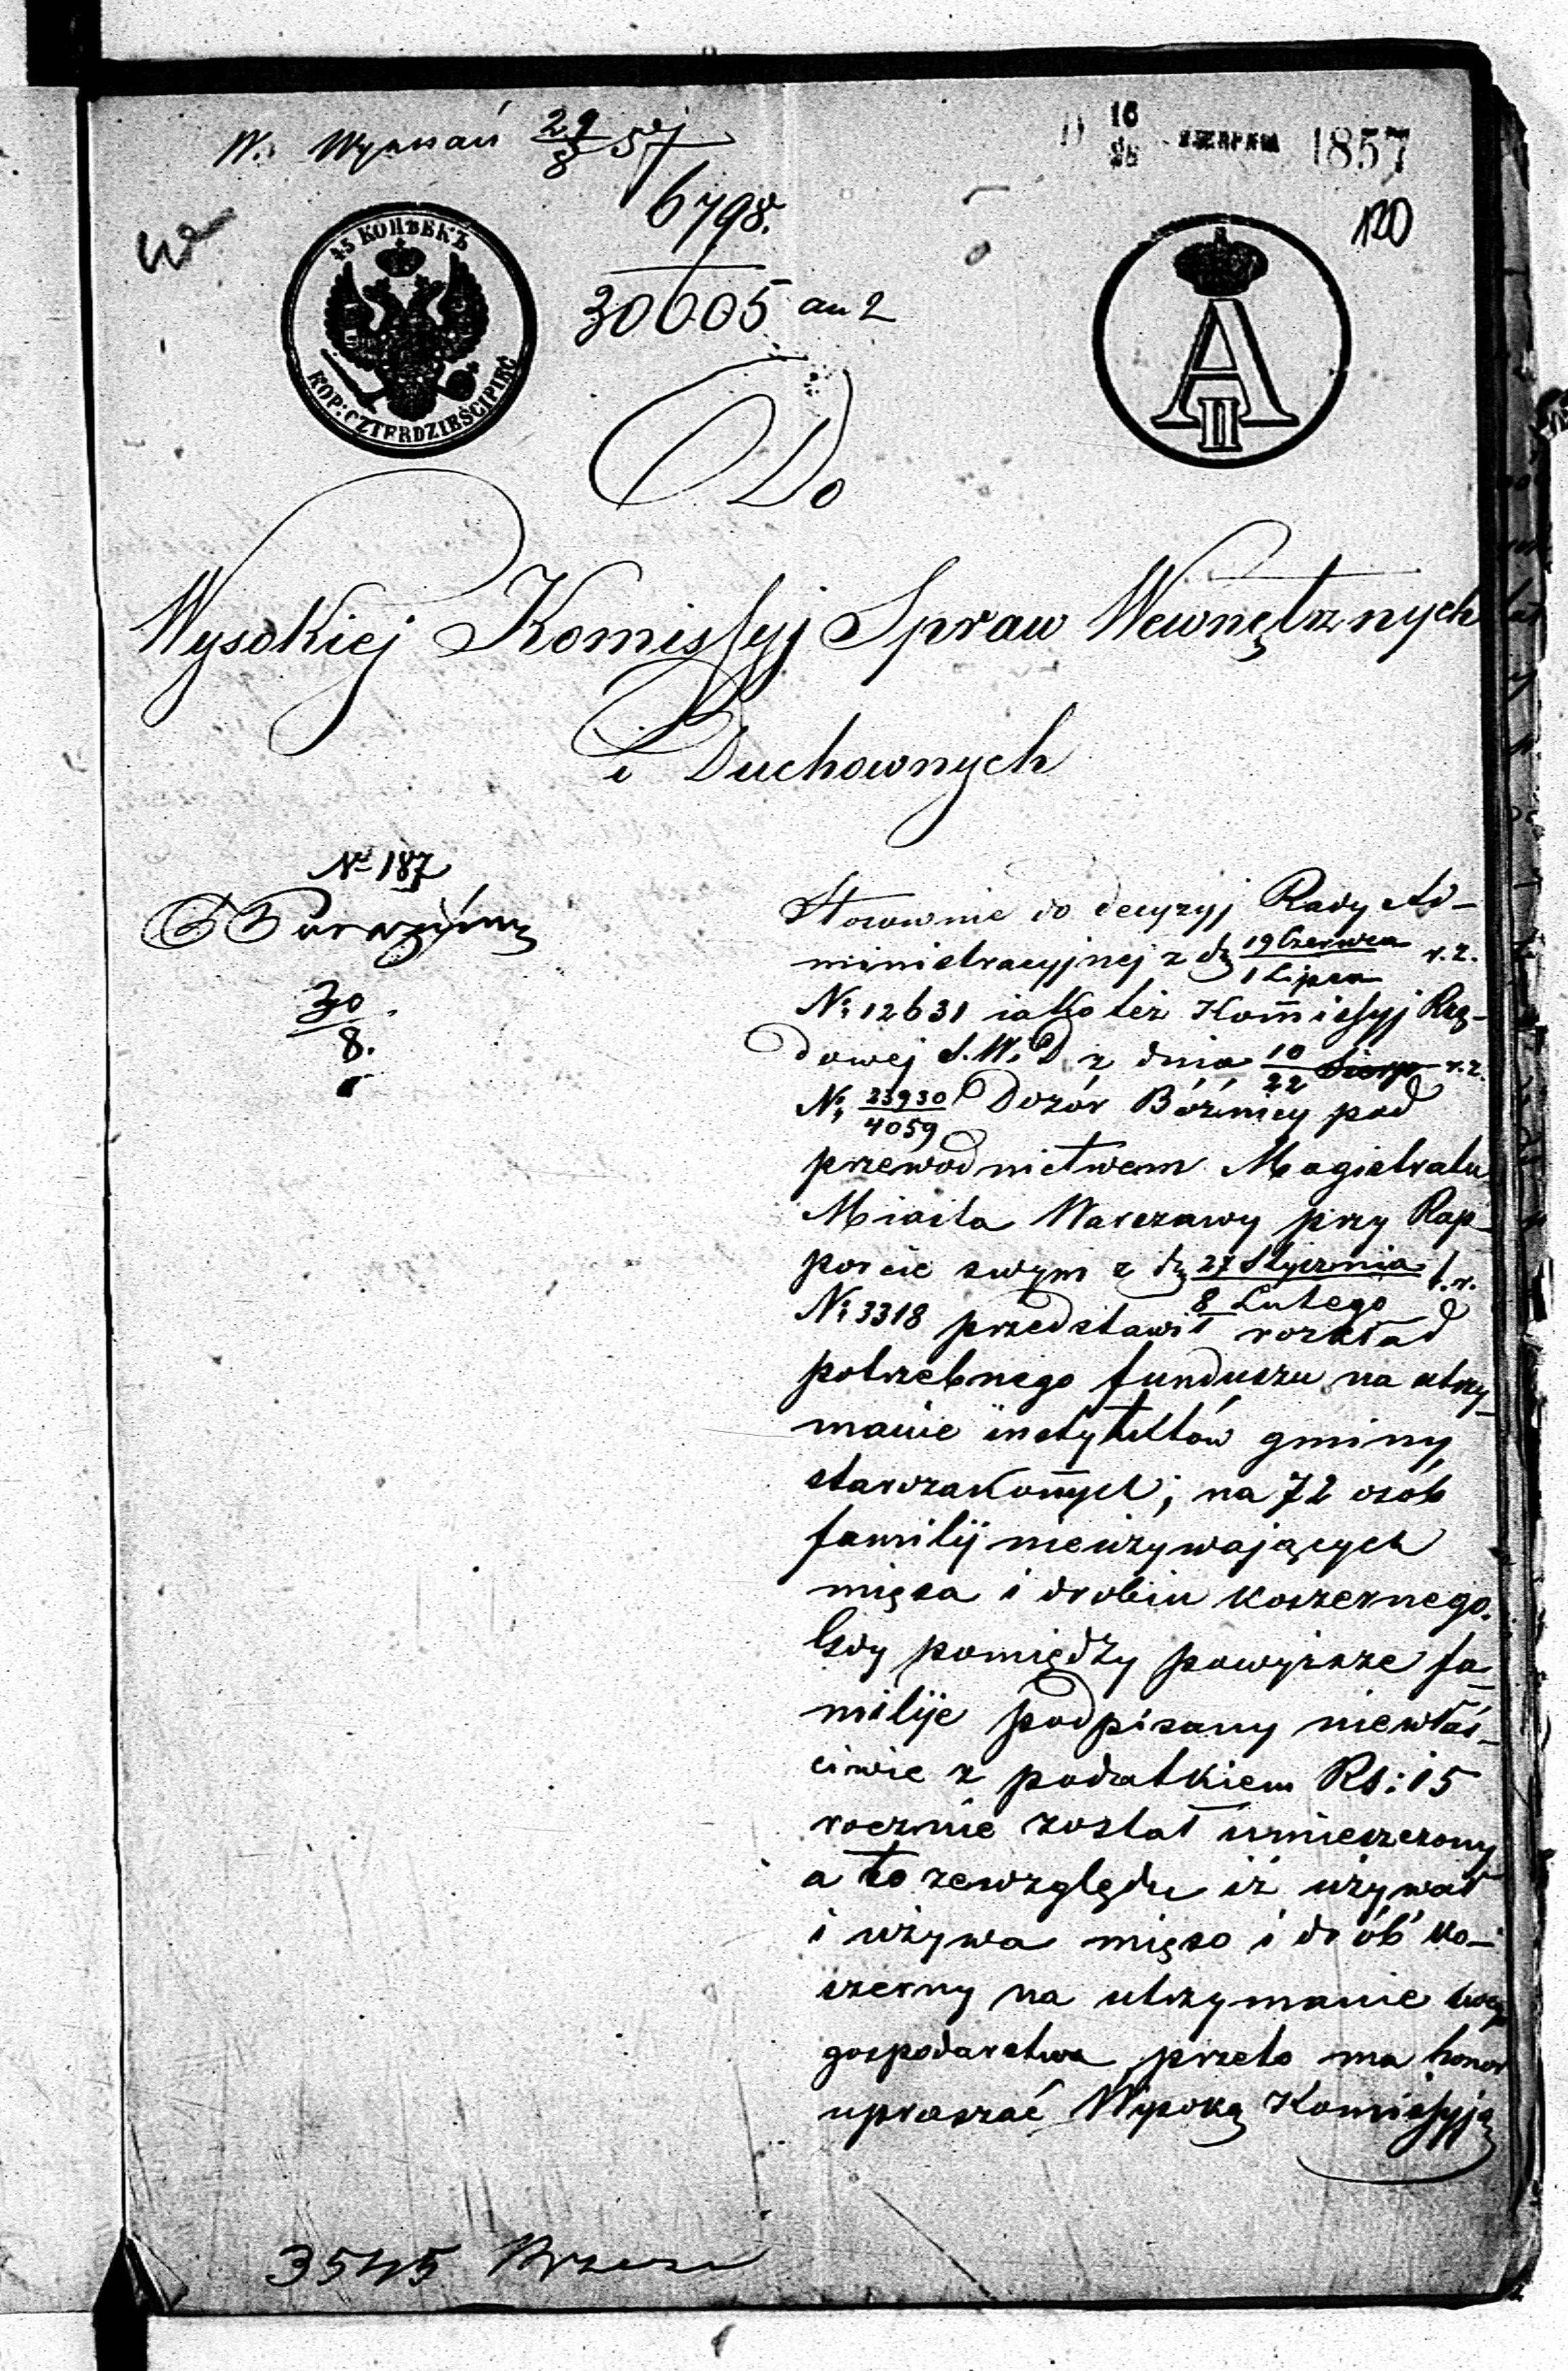 W. 29/8 57
D 16/28 SIERPNIA 1857
6798.
30605 an 2
120
45 КОПѢЕКЪ
KOP: CZTERDZIEŚCI PIĘĆ
A II
Do
Wysokiej Komissyj Spraw Wewnętrznych
i Duchownych
№ 187
30/8.
Stosownie do decyzyj Rady Ad-
ministracyjnej z d. 19 Czerwca/1 Lipca r. z.
N: 12631 iako też Kommissyj Rzą-
dowej S.W.D. z dnia 10/22 Sierp r. z.
N: 23930/4059 Dozór Bóżnicy pod
przewodnictwem Magistratu
Miasta Warszawy przy Rap-
porcie swym z d. 27 Stycznia/8 Lutego t. r.
N: 3318 przedstawił rozkład
potrzebnego funduszu na utrzy-
manie instytutów gminy
starozakonnych; na 72 osób
familij nieużywających
mięsa i drobiu koszernego.
Gdy pomiędzy powyższe fa-
milije podpisany niewłaś-
ciwie z podatkiem Rs: 15
rocznie został umieszczony
a to zewzględu iż używał
i używa mięso i drób ko-
szerny na utrzymanie swego
gospodarstwa przeto ma honor
upraszać Wysoką Komissyją
3545